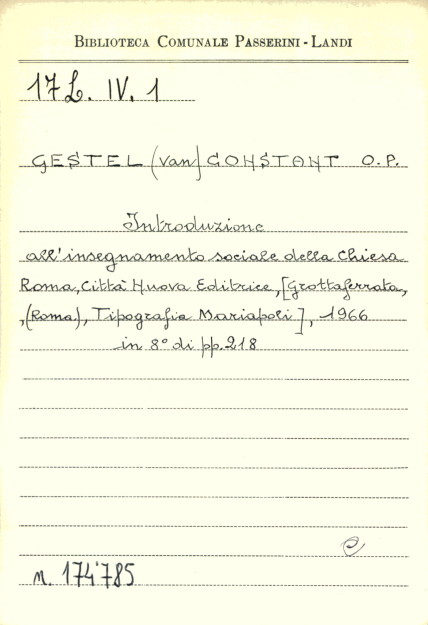 BIBLIOTECA COMUNALE PASSERINI - LANDI
17 L. IV. 1
GESTEL (van) CONSTANT O.P.
Introduzione
all'insegnamento sociale della Chiesa
Roma, Città Nuova Editrice, [Grottaferrata,
,(Roma), Tipografia Mariapoli], 1966
in 8° di pp. 218
e
n. 174'785